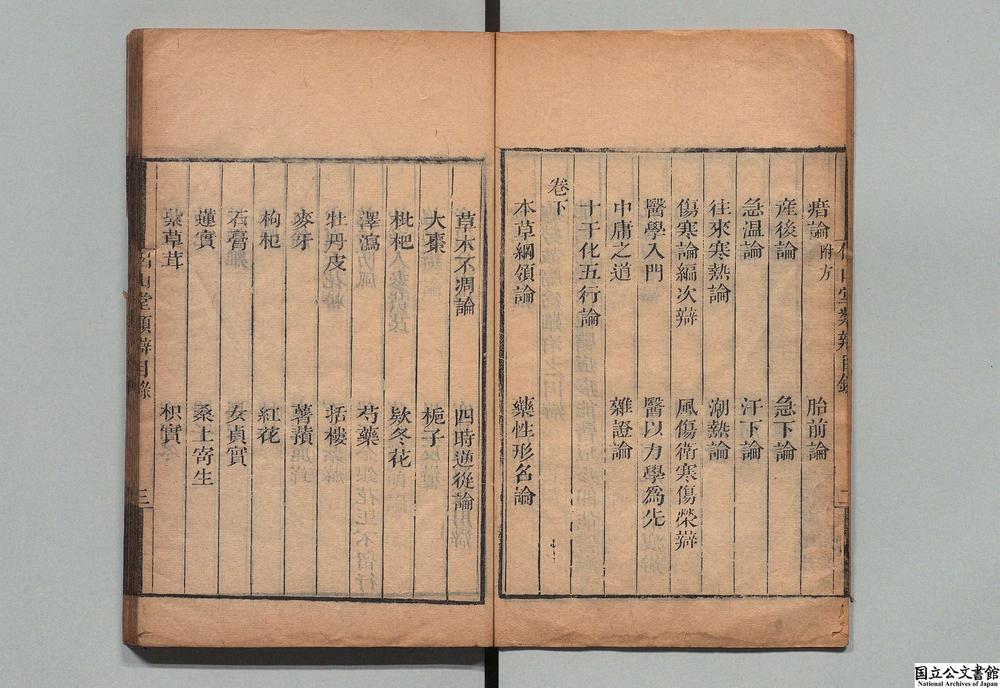 痞論附方 胎前論
産後論 急下論
急温論 汗下論
往來寒熱論 潮熱論
傷寒論編次辯 風傷衛寒傷榮辯
醫學入門 醫以力學爲先
中庸之道 雜證論
十干化五行論
卷下
本草綱領論 藥性形名論
草木不凋論 四時逆從論
大棗 梔子
枇杷 欵冬花
澤瀉 芍藥
牡丹皮 括樓
麥芽 薯蕷
枸杞 紅花
石膏 女貞實
蓮實 桑上寄生
紫草茸 枳實
山堂類辯目錄 三
国立公文書館
National Archives of Japan